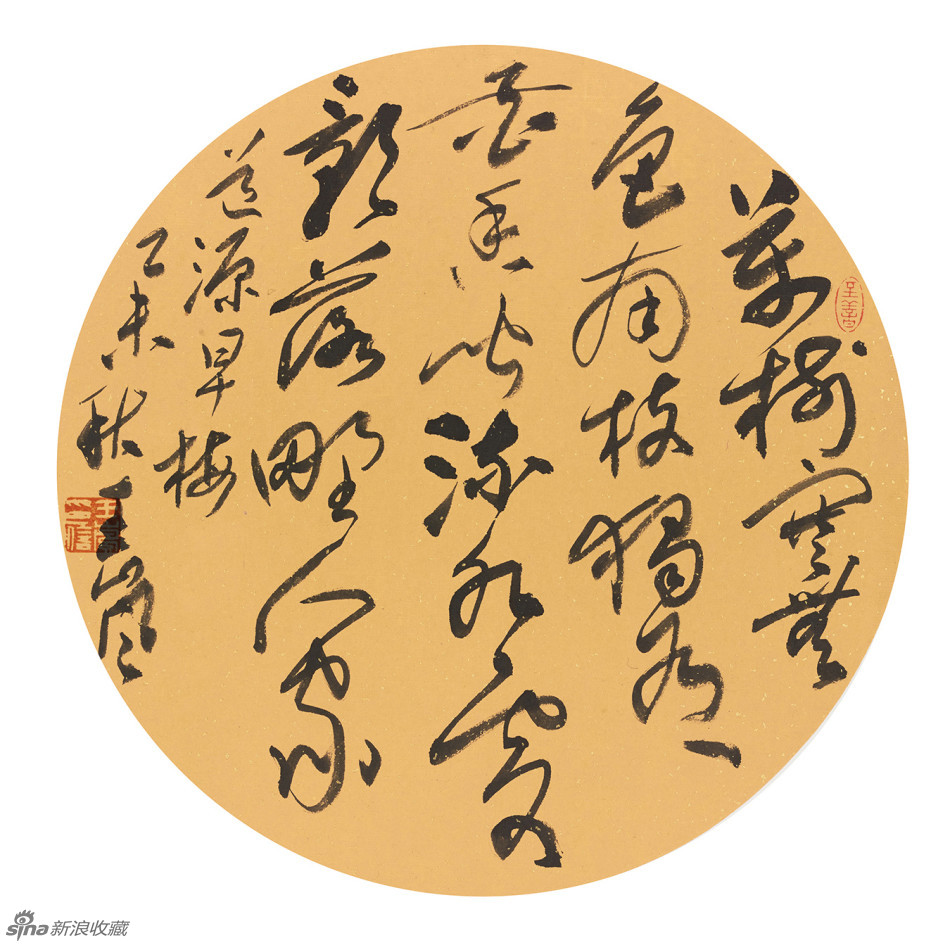 萬樹寒無
色南枝獨有
花香聞流水處
影落野人家
道源早梅
乙未秋王
sina新浪收藏